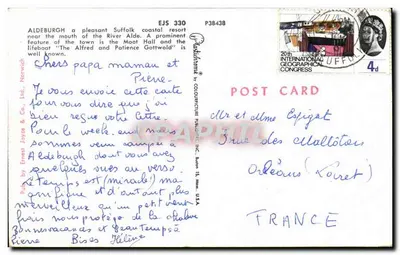 EJS 330
P38438
ALDEBURGH a pleasant Suffolk coastal resort
near the mouth of the River Alde. A prominent
feature of the town is the Moot Hall and the
lifeboat "The Alfred and Patience Gottwald" is
well known.
Chers papa maman et
Pierre
Je vous envoie cette carte
pour vous dire que j'ai
bien reçue votre lettre.
Pour le week-end nous
sommes venus camper à
Aldeburgh dont vous avez
quelques vues au verso.
Le temps est (miracle!) ma
gnifique et d'autant plus
merveilleux qu'un petit vent
frais nous protège de la chaleur
Bonnes vacances et beau temps à
Pierre Bises Hélène
Pub. by Ernest Joyce & Co., Ltd., Norwich
20th
INTERNATIONAL
GEOGRAPHICAL
CONGRESS
4d
SUFFOLK
POST CARD
Mr et Mme
Rue des Maltôtiers
Orléans (Loiret)
FRANCE